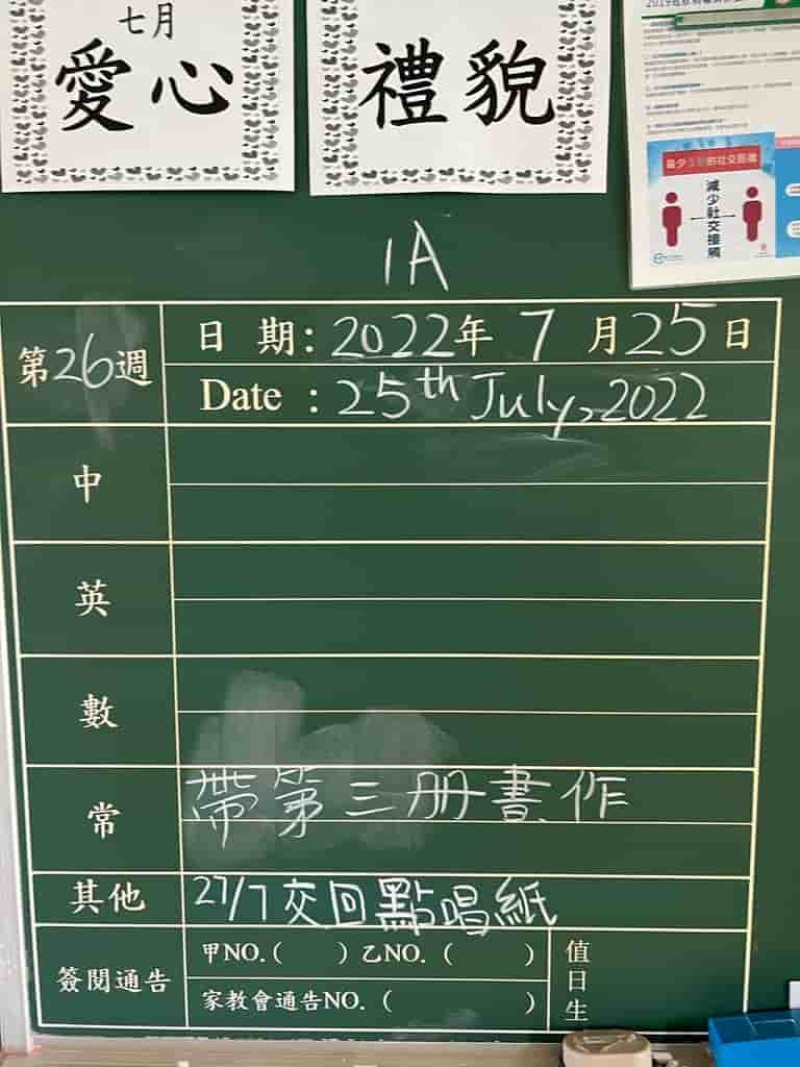 七月
愛心
禮貌
減少社交接觸
1A
第26週
日 期: 2022年 7 月25日
Date : 25th July, 2022
中
英
數
常
帶第三册書作
其他
27/7 交回點唱紙
簽閱通告
甲NO.( ) 乙NO. ( )
家教會通告NO. ( )
值日生